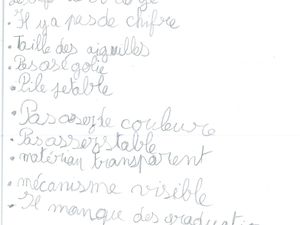 Il y a pas de chifre
Taille des aiguilles
Pile jetable
Pas assez de couleure
Pas assez stable
matériau transparent
mécanisme visible
Il manque des graduati